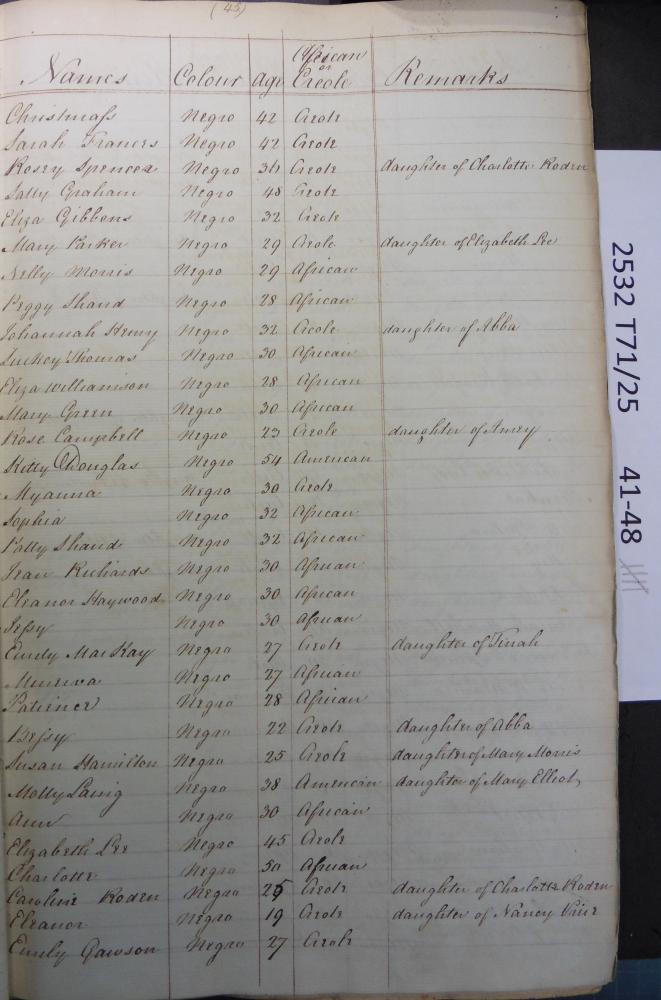 (45)
Names Colour Age African or Creole Remarks
Christmass Negro 42 Creole
Sarah Frances Negro 42 Creole
Rosey Spencer Negro 36 Creole daughter of Charlotte Roden
Sally Graham Negro 48 Creole
Eliza Gibbons Negro 32 Creole
Mary Parker Negro 29 Creole daughter of Elizabeth Lee
Nelly Morris Negro 29 African
Peggy Shand Negro 28 African
Johannah Henry Negro 32 Creole daughter of Abba
Luckey Thomas Negro 30 African
Eliza Williamson Negro 28 African
Mary Green Negro 30 African
Rose Campbell Negro 23 Creole daughter of Amey
Kitty Douglas Negro 54 American
Myanna Negro 30 Creole
Sophia Negro 32 African
Patty Shand Negro 32 African
Jean Richards Negro 30 African
Eleanor Haywood Negro 30 African
Jessy Negro 30 African
Emily MacKay Negro 27 Creole daughter of Tinah
Minerva Negro 27 African
Patience Negro 28 African
Bessy Negro 22 Creole daughter of Abba
Susan Hamilton Negro 25 Creole daughter of Mary Morris
Molly Laing Negro 38 American daughter of Mary Elliot
Ann Negro 30 African
Elizabeth Lee Negro 45 Creole
Charlotte Negro 50 African
Caroline Roden Negro 25 Creole daughter of Charlotte Roden
Eleanor Negro 19 Creole daughter of Nancy
Emily Gawson Negro 27 Creole
2532 T71/25 41-48